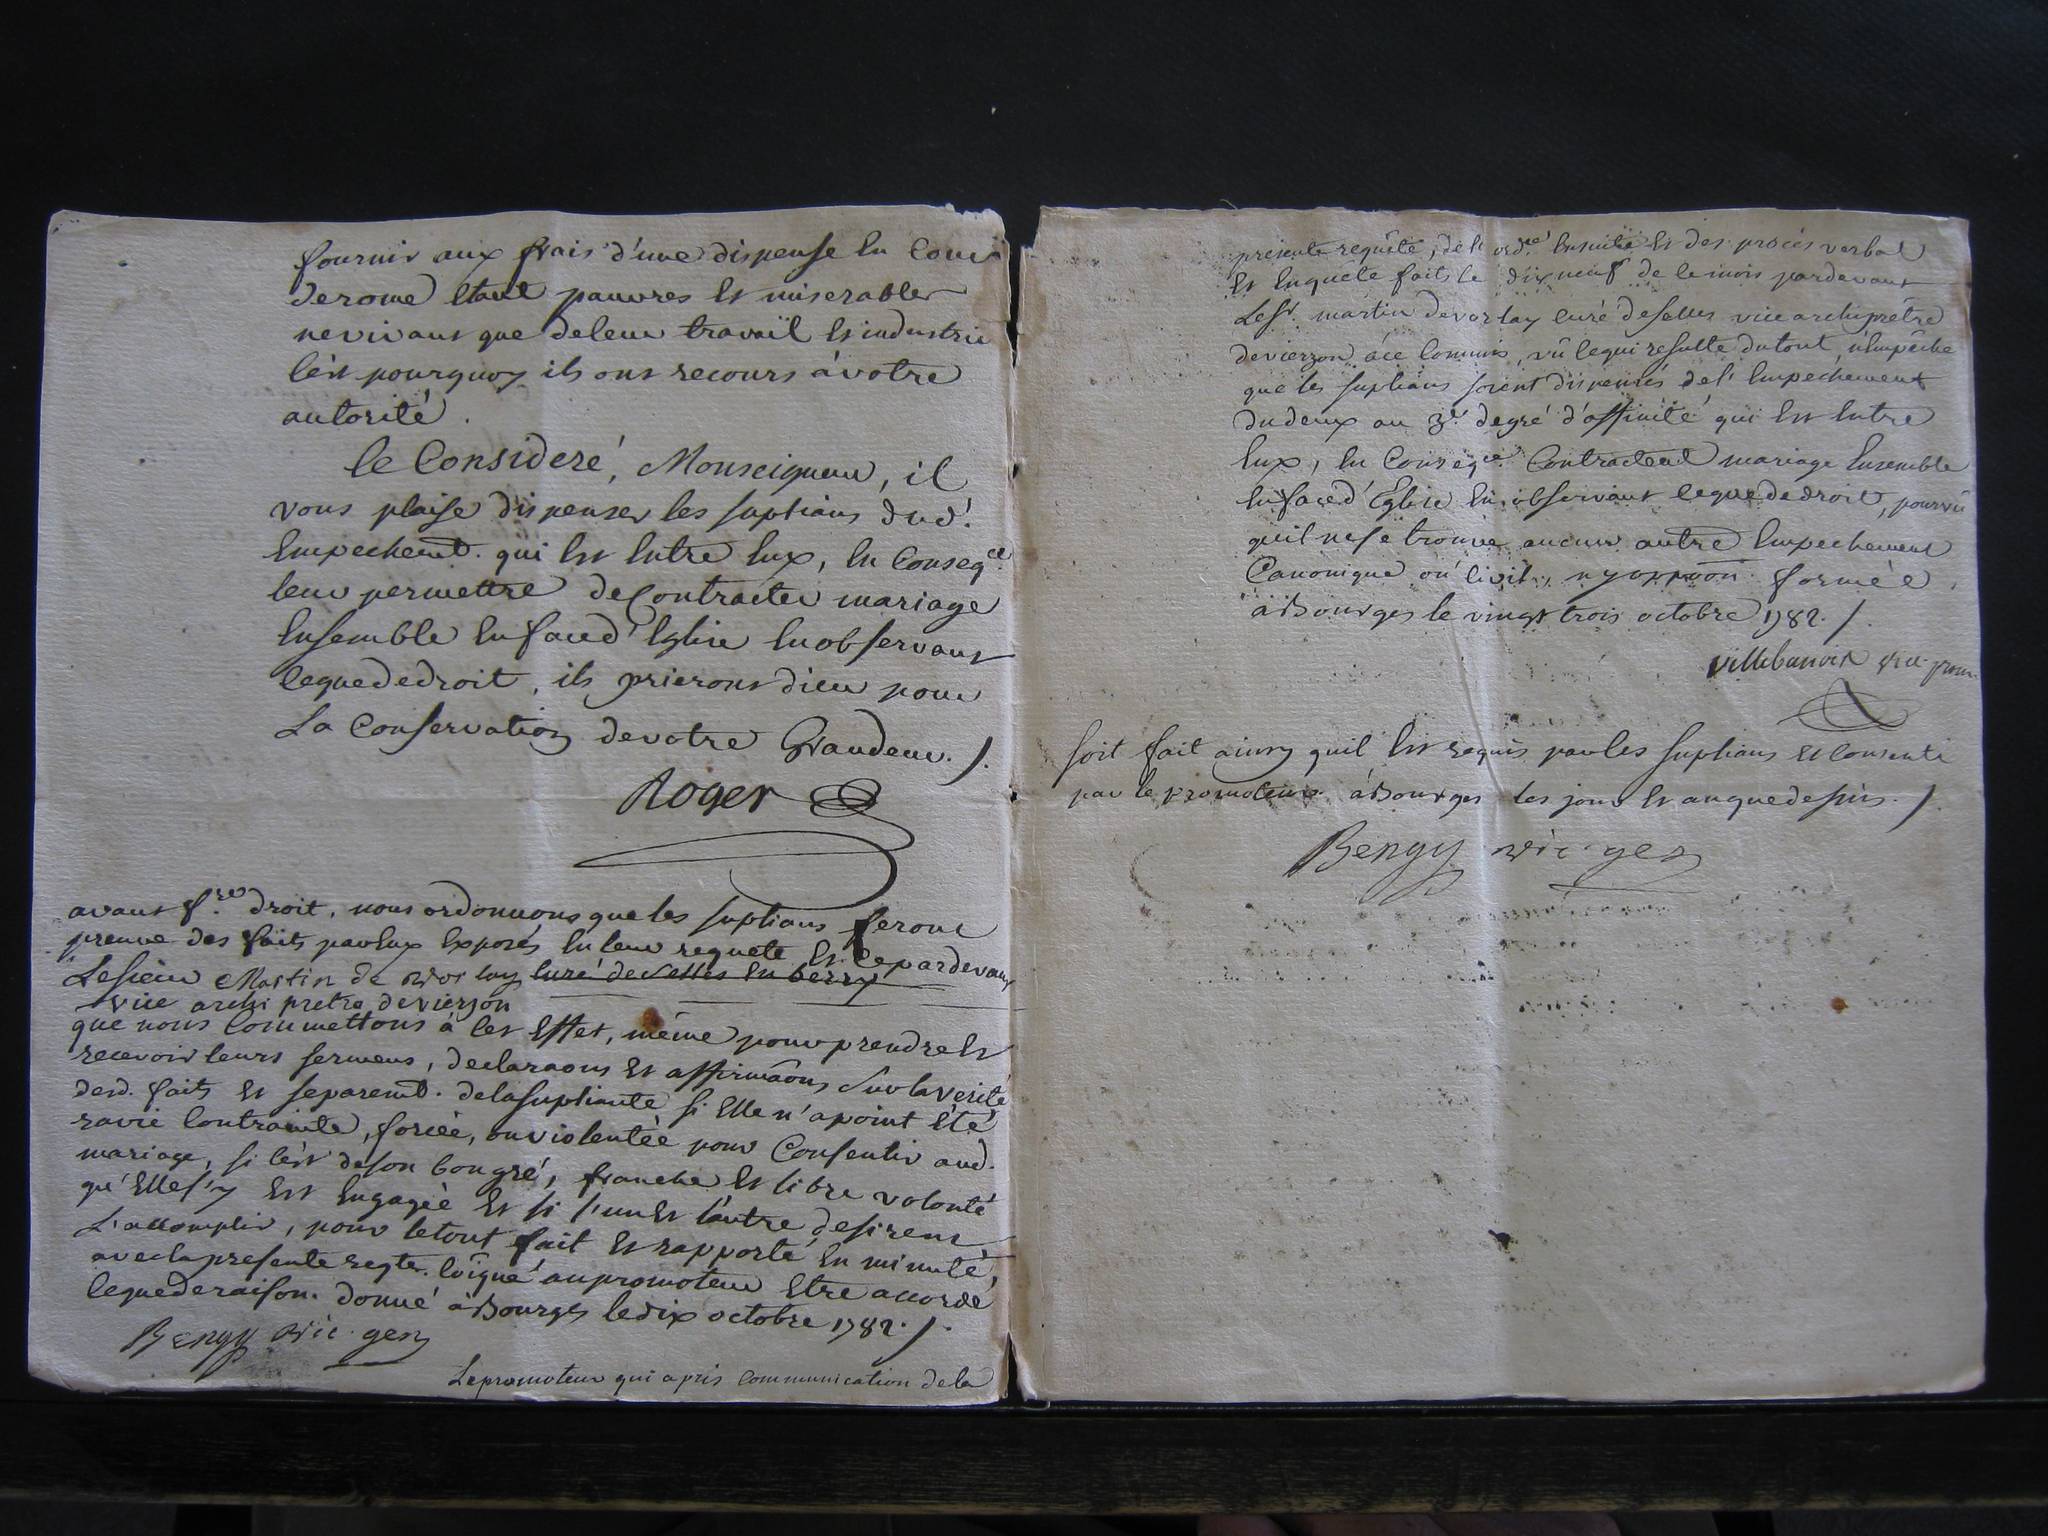 fournir aux frais d'une dispense en Cour
de rome etant pauvres et miserables
ne vivant que de leur travail et industrie
c'est pourquoy ils ont recours à votre
autorité.
Ce Consideré, Monseigneur, il
vous plaise dispenser les suplians dud.
Empechemt. qui est entre eux, en Conseqce.
leur permettre de Contracter mariage
Ensemble en face d'Eglise en observant
ce que de droit, ils prieront dieu pour
La Conservation de votre Grandeur./.
Roger
avant fre. droit, nous ordonnons que les suplians feront
preuve des faits par eux exposés en leur requete et ce pardevant
Le sieur Martin de Vorlay curé de Selles en berry
vice archi pretre de vierzon
que nous Commettons à cet Effet, même pour prendre et
recevoir leurs sermens, declaraons et affirmaons sur la verité
desd. faits et separemt. de la supliante si Elle n'a point été
ravie contrainte, forcée, ou violentée pour Consentir aud.
mariage, si c'est de son bon gré, franche et libre volonté
qu'Elle s'y est Engagée et si l'un et l'autre desirent
L'accomplir, pour le tout fait et rapporté en minute,
avec la presente reqte. coigné au promoteur Etre accordé
ce que de raison. donné à Bourges le dix octobre 1782./.
Bengy vic. gen
Le promoteur qui a pris communication de la
presente requête, de l'ordce. Ensuite et des procès verbal
et Enquete faits le dix neuf de ce mois pardevant
Le Sr. martin de vorlay curé de Selles vice archiprêtre
de vierzon à ce Commis, vû ce qui resulte du tout, n'Empêche
que les suplians soient dispensés de l'Empechement
du deux au 3e. degré d'affinité qui est Entre
Eux, en Conseqce. Contractent mariage Ensemble
en face d'Eglise en observant ce que de droit, pourvû
qu'il ne se trouve aucun autre Empechement
Canonique ou Civil, ny oppoon formée,
à Bourges le vingt trois octobre 1782./.
Villebanois vice prom
soit fait ainsy qu'il Est requis par les suplians et Consenti
par le promoteur à Bourges les jour et an que dessus./.
Bengy vic. gen